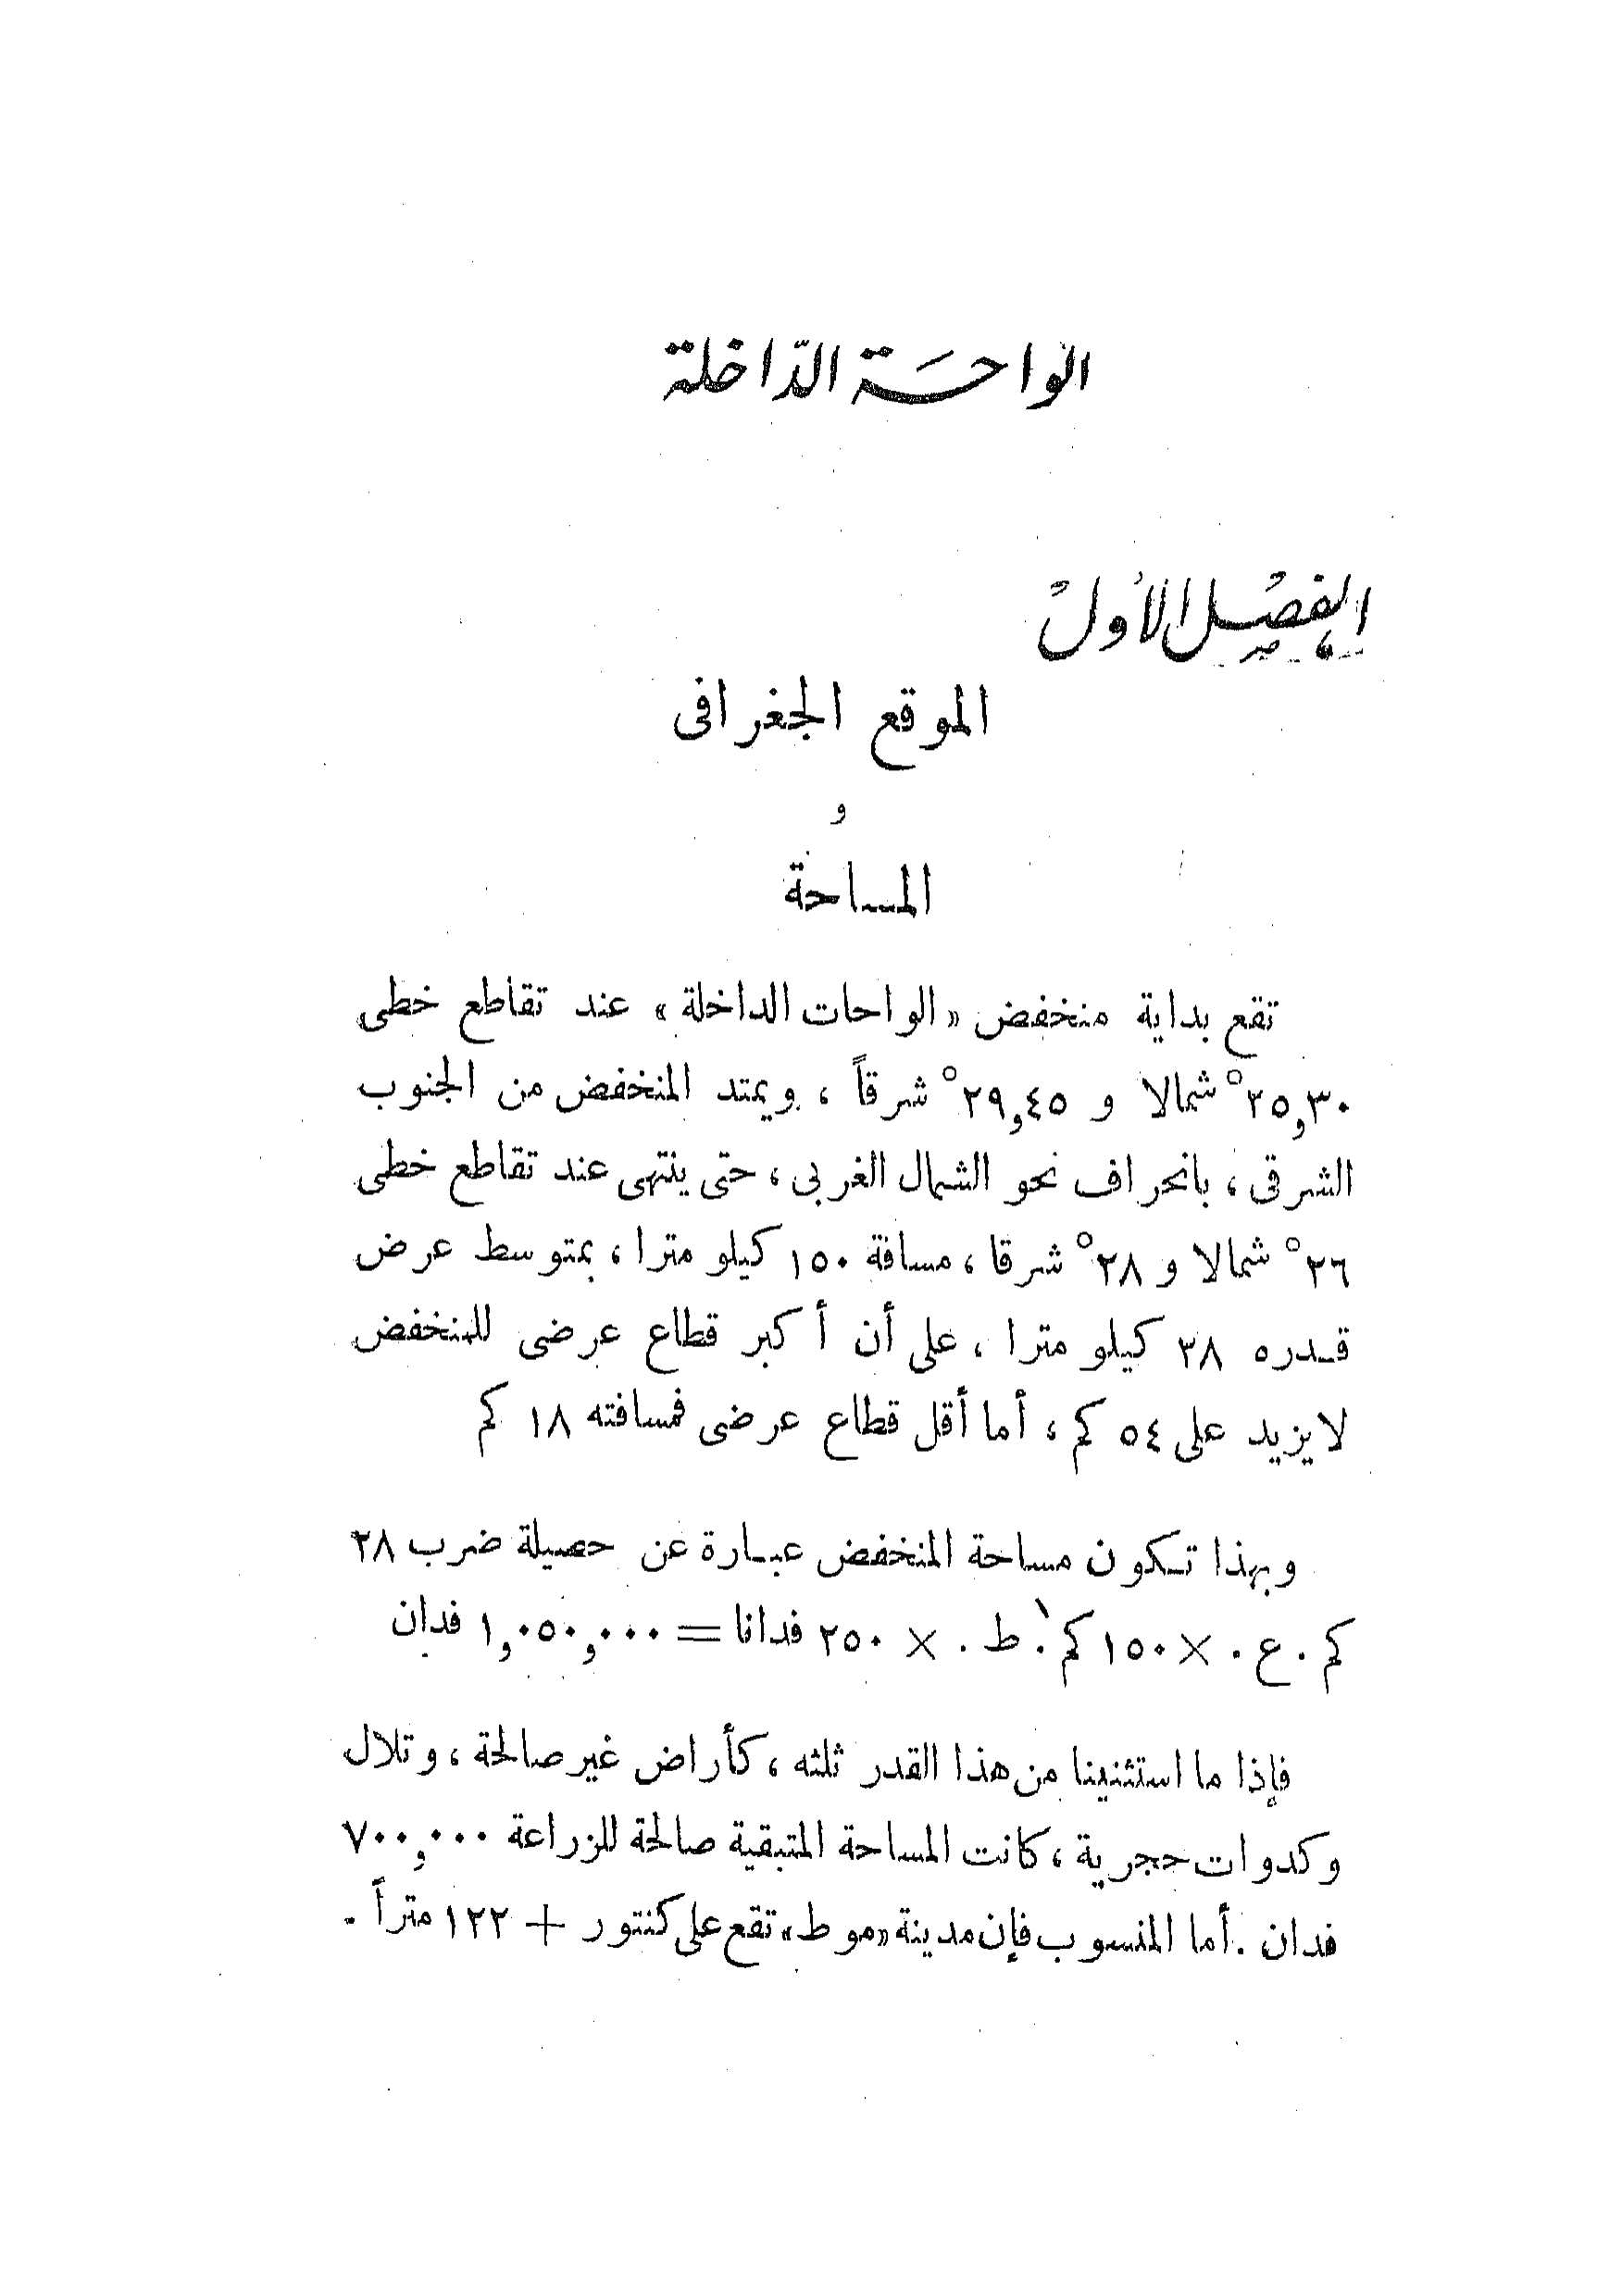 الواحة الدّاخلة
الفصل الأول
الموقع الجغرافى
و
المساحة
تقع بداية منخفض «الواحات الداخلة» عند تقاطع خطى
٢٥,٣٠° شمالا و ٢٩,٤٥° شرقاً ، ويمتد المنخفض من الجنوب
الشرقى ، بانحراف نحو الشمال الغربى ، حتى ينتهى عند تقاطع خطى
٢٦° شمالا و ٢٨° شرقا ، مسافة ١٥٠ كيلو مترا ، بمتوسط عرض
قدره ٢٨ كيلو مترا ، على أن أكبر قطاع عرضى للمنخفض
لا يزيد على ٥٤ كم ، أما أقل قطاع عرضى فمسافته ١٨ كم
وبهذا تكون مساحة المنخفض عبارة عن حصيلة ضرب ٢٨
كم . ع . × ١٥٠ كم . ط . × ٢٥٠ فدانا = ١,٠٥٠,٠٠٠ فدان
فإذا ما استثنينا من هذا القدر ثلثه ، كأراض غير صالحة ، وتلال
وكدوات حجرية ، كانت المساحة المتبقية صالحة للزراعة ٧٠٠,٠٠٠
فدان . أما المنسوب فإن مدينة «موط» تقع على كنتور + ١٢٢ متراً .